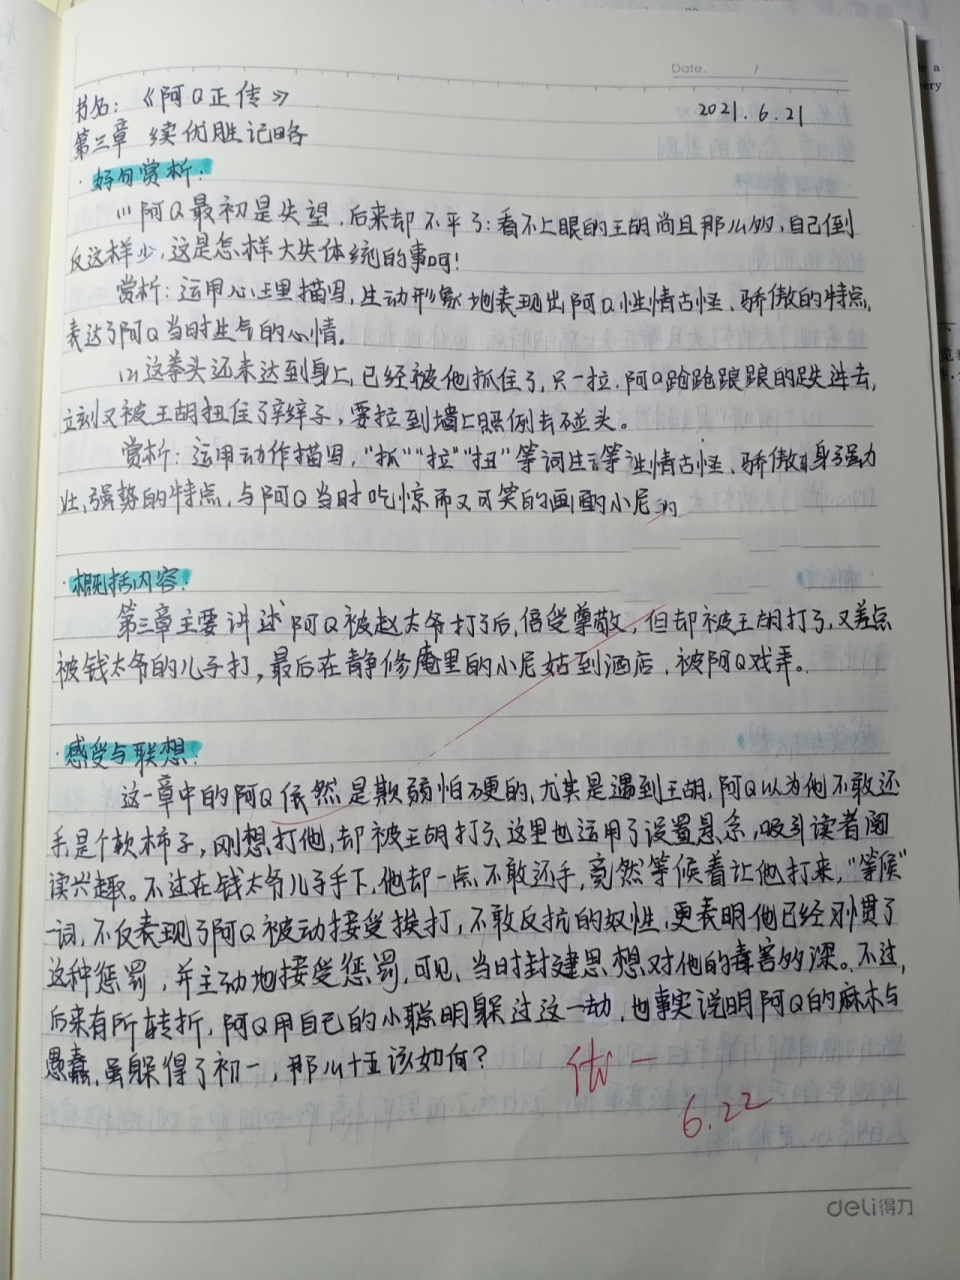 Date. /
书名：《阿Q正传》 2021.6.21
第三章 续优胜记略
·好句赏析：
(1) 阿Q最初是失望，后来却不平了：看不上眼的王胡尚且那么多，自己倒
反这样少，这是怎样大失体统的事呵！
赏析：运用心理描写，生动形象地表现出阿Q性情古怪、骄傲的特点，
表达了阿Q当时生气的心情。
(2) 这拳头还未达到身上，已经被他抓住了，只一拉，阿Q跄跄踉踉的跌进去，
立刻又被王胡扭住了辫子，要拉到墙上照例去碰头。
赏析：运用动作描写，“抓”“拉”“扭”等词生 等 性情古怪、骄傲 身强力
壮、强势的特点，与阿Q当时吃惊而又可笑的画 小尼 的
·概括内容：
第三章主要讲述阿Q被赵太爷打了后，倍受尊敬，但却被王胡打了，又差点
被钱太爷的儿子打，最后在静修庵里的小尼姑到酒店，被阿Q戏弄。
·感受与联想：
这一章中的阿Q依然是欺弱怕硬的，尤其是遇到王胡，阿Q以为他不敢还
手是个软柿子，刚想打他，却被王胡打了，这里也运用了设置悬念，吸引读者阅
读兴趣。不过在钱太爷儿子手下，他却一点不敢还手，竟然等候着让他打来，“等候”
一词，不仅表现了阿Q被动接受挨打，不敢反抗的奴性，更表明他已经习惯了
这种惩罚，并主动地接受惩罚，可见，当时封建思想对他的毒害多深。不过，
后来有所转折，阿Q用自己的小聪明躲过这一劫，也事实说明阿Q的麻木与
愚蠢，虽躲得了初一，那么十五该如何？
优-
6.22
deli得力